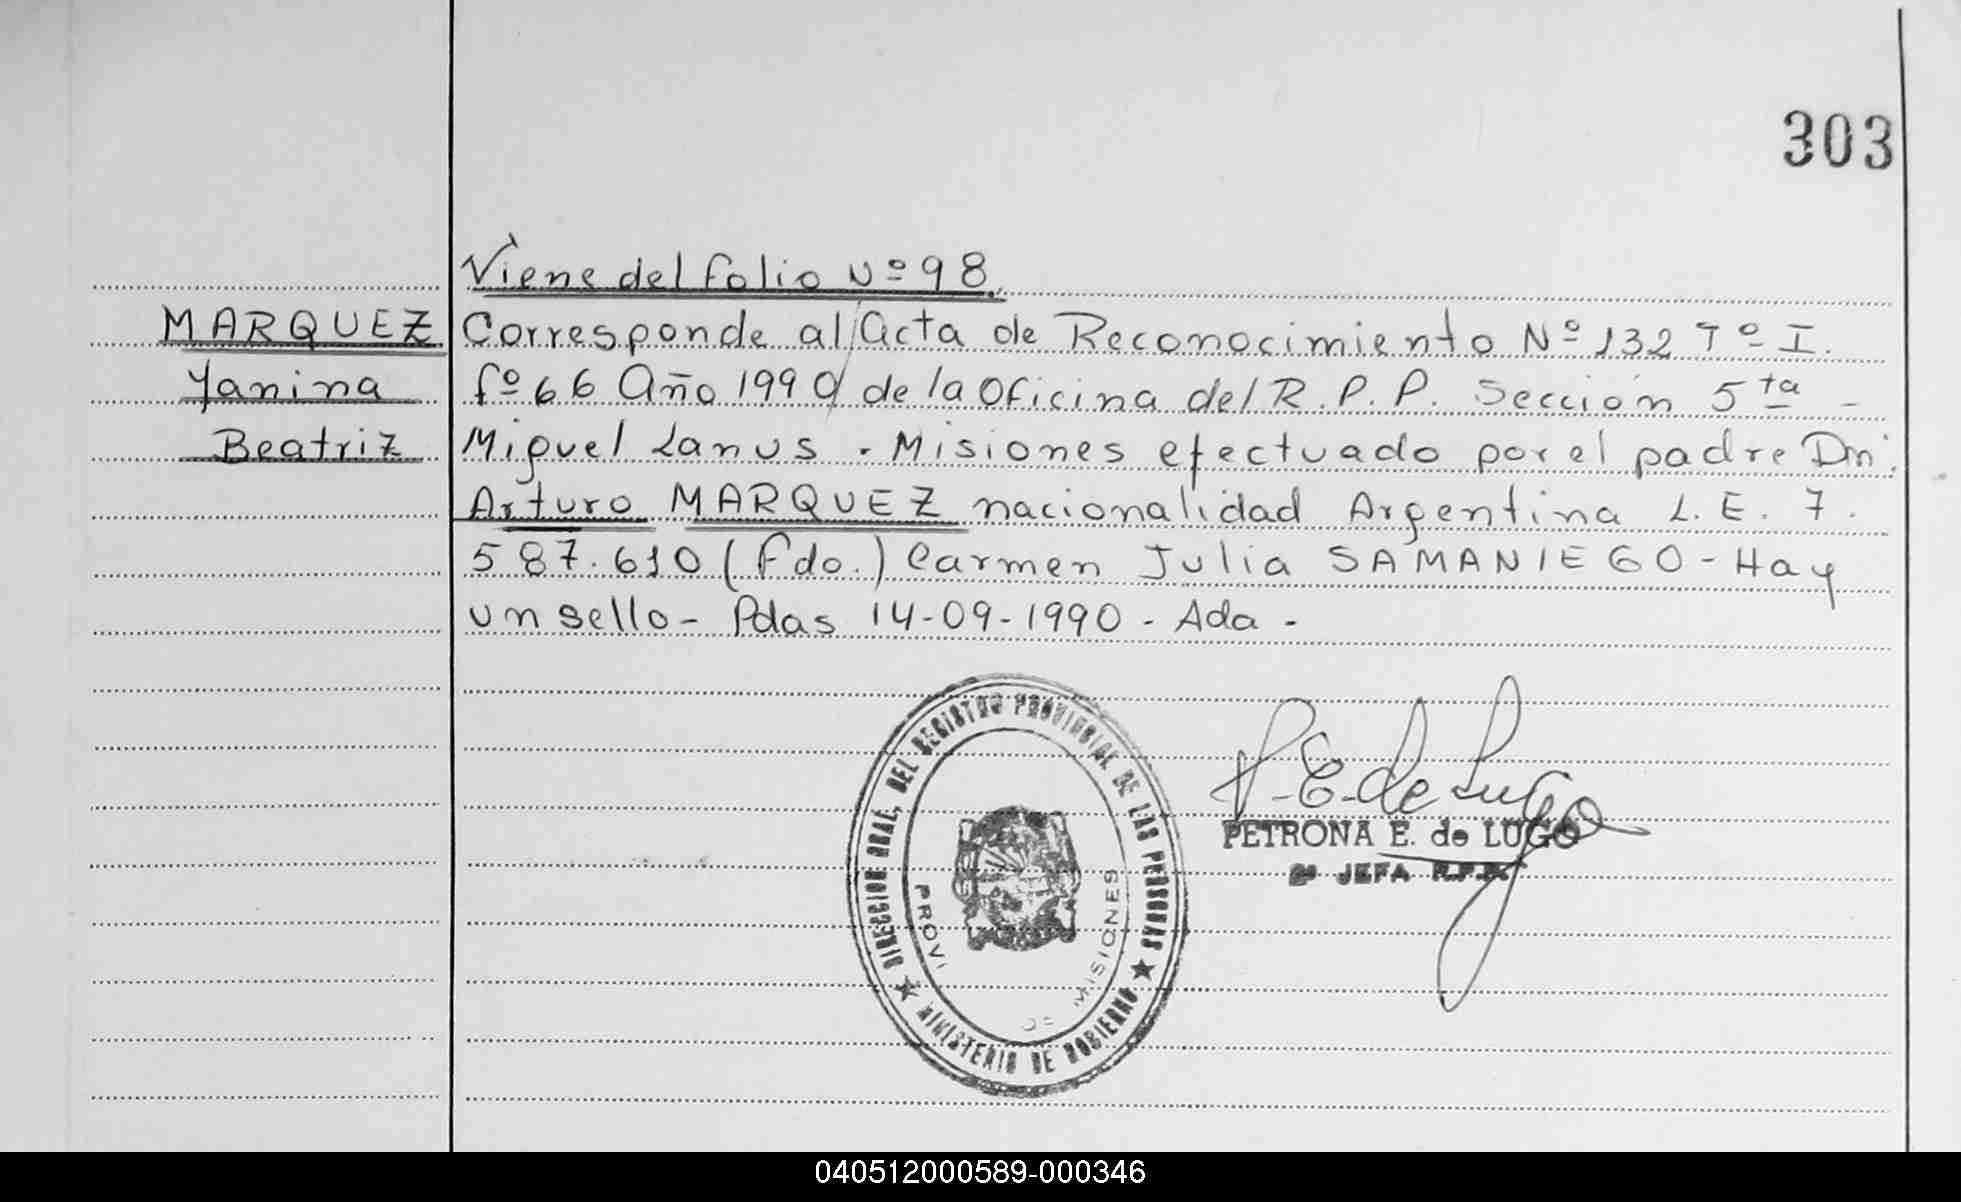 303
Viene del folio Nº 98.
MARQUEZ
Yanina
Beatriz
Corresponde al/acta de Reconocimiento Nº 132 Tº I.
fº 66 Año 1990 de la Oficina del R.P.P. Sección 5ta -
Miguel Lanus - Misiones efectuado por el padre Dn.
Arturo MARQUEZ nacionalidad Argentina L.E. 7.
587.610 (Fdo.) Carmen Julia SAMANIEGO - Hay
un sello - Pdas 14-09-1990 - Ada -
DIRECCION GRAL. DEL REGISTRO PROVINCIAL DE LAS PERSONAS
★ MINISTERIO DE GOBIERNO ★
PROVI
DE MISIONES
P. E. de Lugo
PETRONA E. de LUGO
2ª JEFA R.P.P.
040512000589-000346